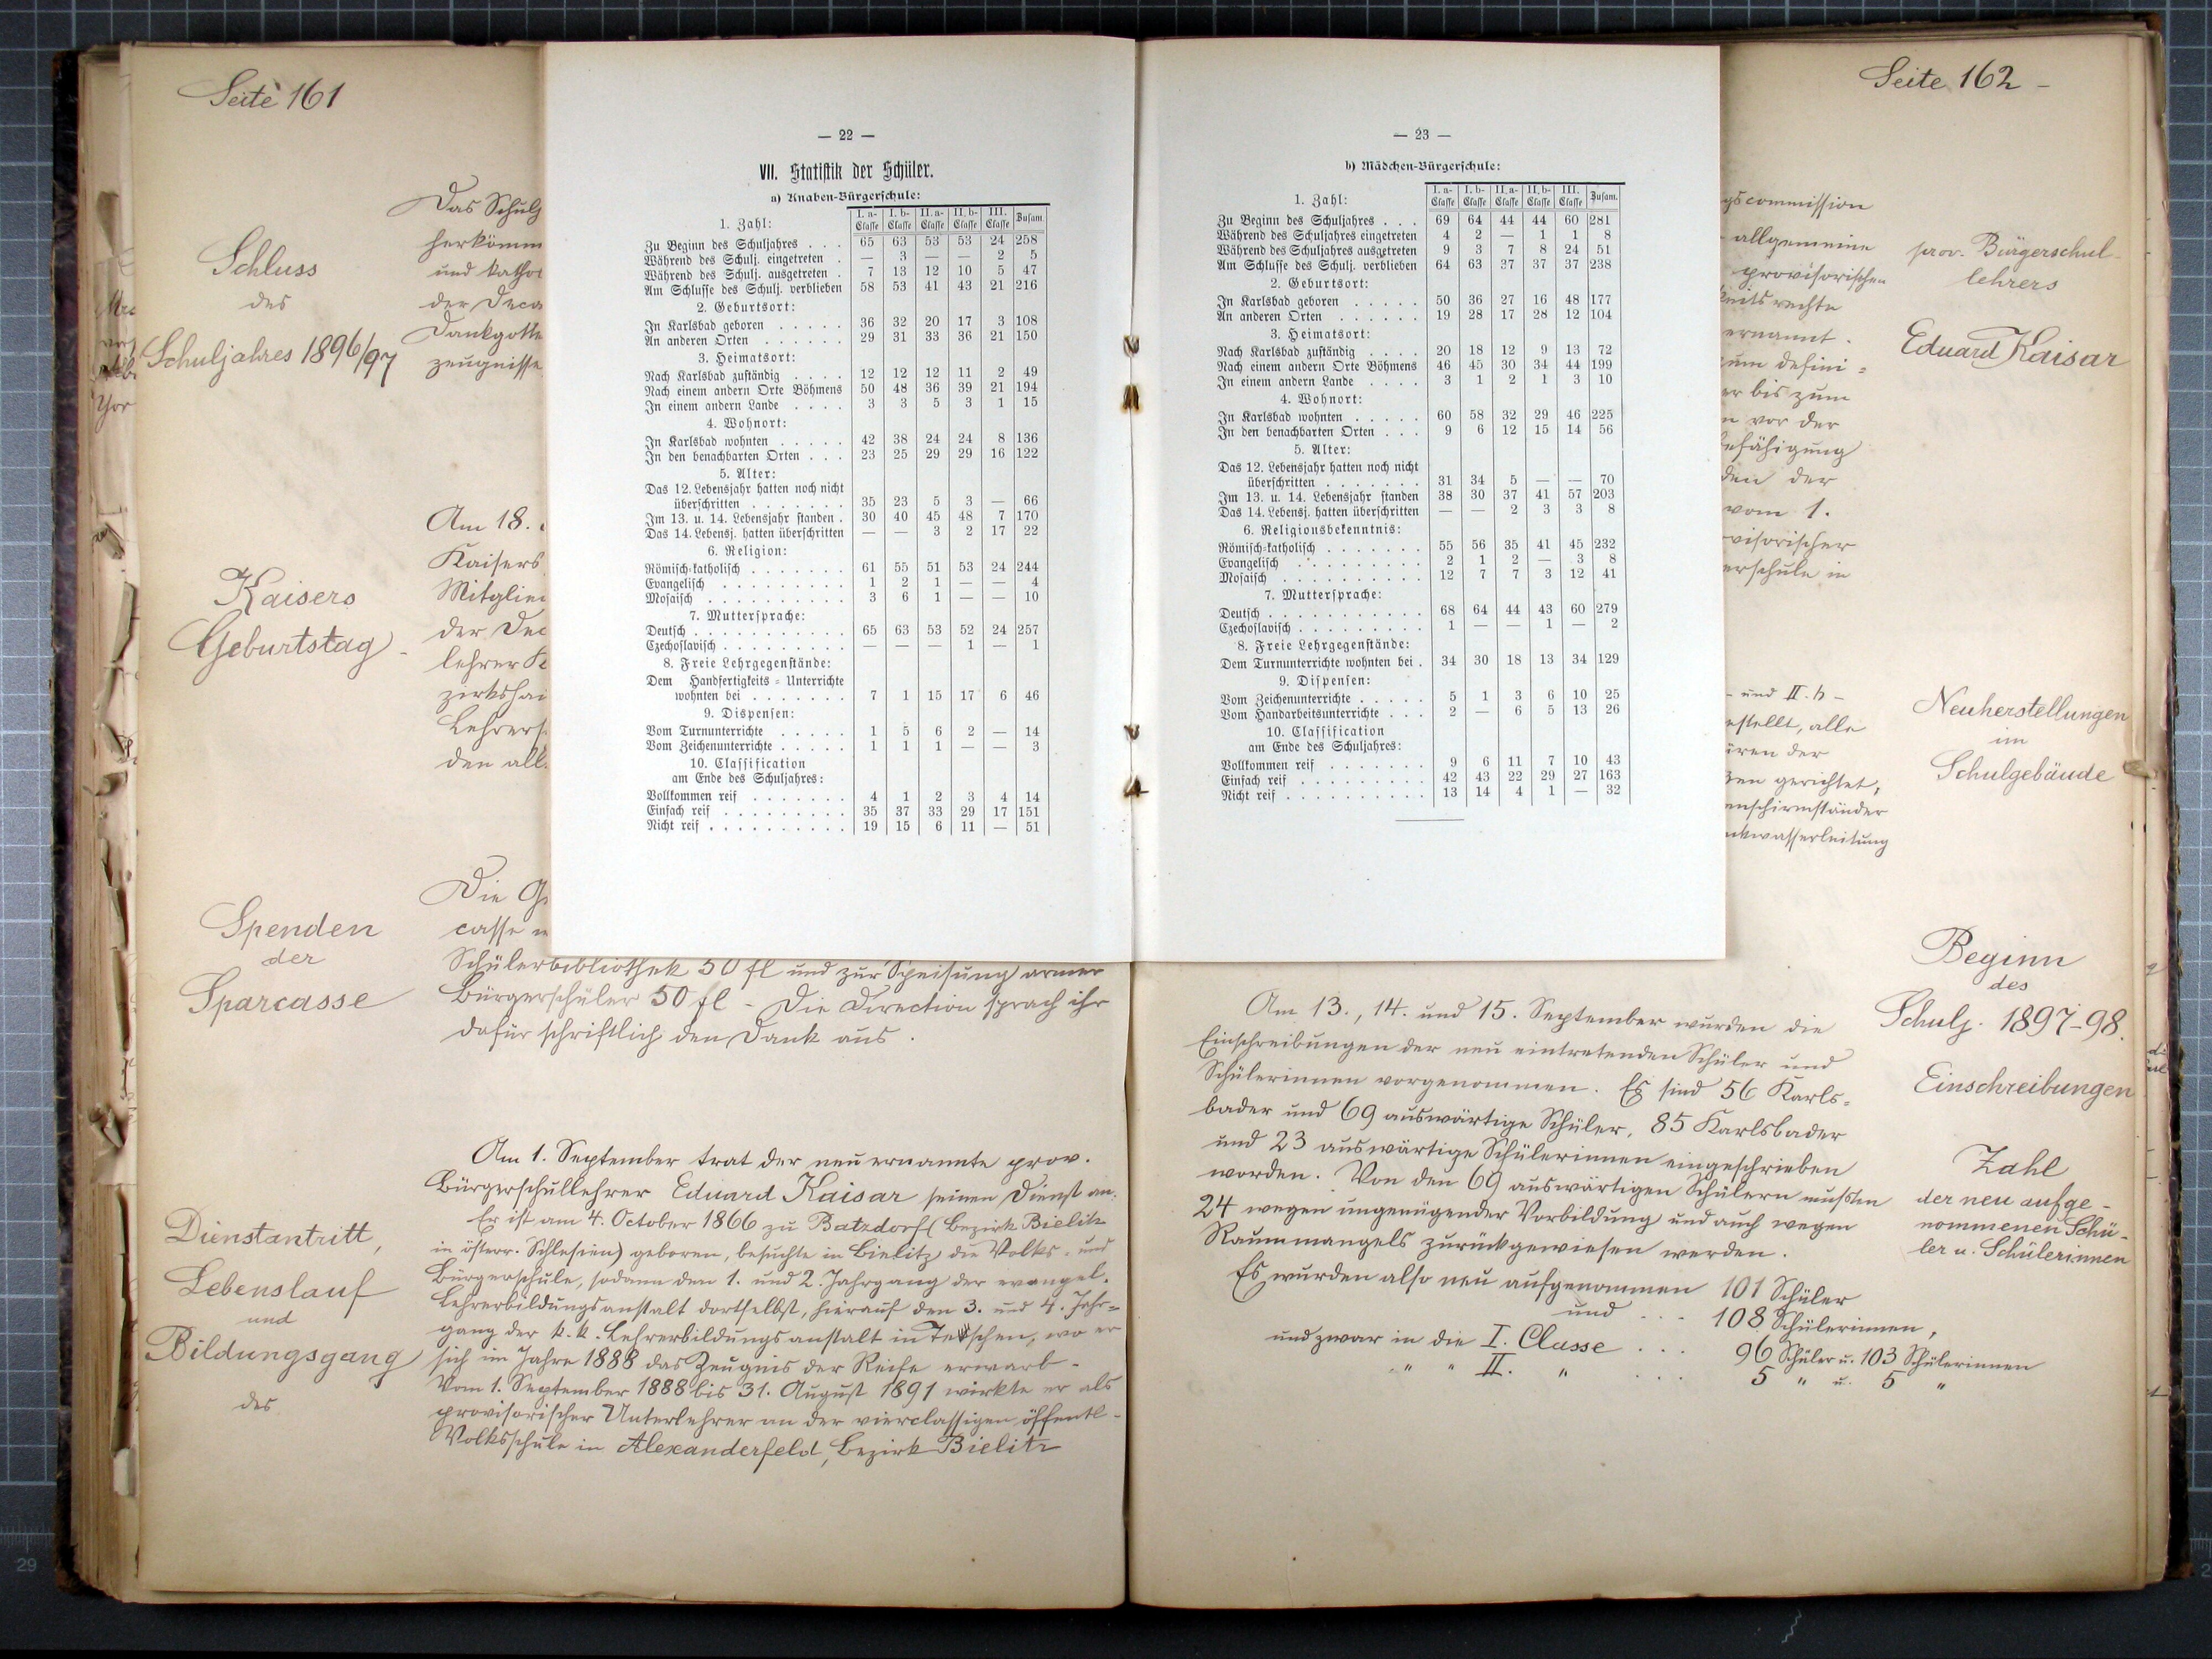 Seite 161
Schluss
des
Schuljahres 1896/97
Das Schulj
herkömm
und kathol
der Deca
Dankgotte
zeugnisse
Kaisers
Geburtstag
Am 18.
Kaisers
Mitglied
der Dec
lehrer K
zirkshau
Lehrers
den all.
Spenden
der
Sparcasse
Die Ge
casse
Schülerbibliothek 50 fl und zur Speisung armer
Bürgerschüler 50 fl - Die Direction sprach ihr
dafür schriftlich den Dank aus.
Dienstantritt,
Lebenslauf
und
Bildungsgang
des
Am 1. September trat der neu ernannte prov.
Bürgerschullehrer Eduard Kaisar seinen Dienst an.
Er ist am 4. October 1866 zu Batzdorf (Bezirk Bielitz
in österr. Schlesien) geboren, besuchte in Bielitz die Volks- und
Bürgerschule, sodann den 1. und 2. Jahrgang der evangel.
Lehrerbildungsanstalt dortselbst, hierauf den 3. und 4. Jahr=
gang der k. k. Lehrerbildungsanstalt in Teschen, wo er
sich im Jahre 1888 das Zeugnis der Reife erwarb -
Vom 1. September 1888 bis 31. August 1891 wirkte er als
provisorischer Unterlehrer an der vierclassigen öffentl-
Volksschule in Alexanderfeld, Bezirk Bielitz
— 22 —
VII. Statistik der Schüler.
a) Knaben-Bürgerschule:
I. a-Classe I. b-Classe II. a-Classe II. b-Classe III. Classe Zusam.
1. Zahl:
Zu Beginn des Schuljahres . . . 65 63 53 53 24 258
Während des Schulj. eingetreten . — 3 — — 2 5
Während des Schulj. ausgetreten . 7 13 12 10 5 47
Am Schlusse des Schulj. verblieben 58 53 41 43 21 216
2. Geburtsort:
In Karlsbad geboren . . . . . 36 32 20 17 3 108
An anderen Orten . . . . . . 29 31 33 36 21 150
3. Heimatsort:
Nach Karlsbad zuständig . . . . 12 12 12 11 2 49
Nach einem andern Orte Böhmens 50 48 36 39 21 194
In einem andern Lande . . . . 3 3 5 3 1 15
4. Wohnort:
In Karlsbad wohnten . . . . . 42 38 24 24 8 136
In den benachbarten Orten . . . 23 25 29 29 16 122
5. Alter:
Das 12. Lebensjahr hatten noch nicht
überschritten . . . . . . . 35 23 5 3 — 66
Im 13. u. 14. Lebensjahr standen . 30 40 45 48 7 170
Das 14. Lebensj. hatten überschritten — — 3 2 17 22
6. Religion:
Römisch-katholisch . . . . . . . 61 55 51 53 24 244
Evangelisch . . . . . . . . . 1 2 1 — — 4
Mosaisch . . . . . . . . . . 3 6 1 — — 10
7. Muttersprache:
Deutsch . . . . . . . . . . . 65 63 53 52 24 257
Czechoslavisch . . . . . . . . . — — — 1 — 1
8. Freie Lehrgegenstände:
Dem Handfertigkeits = Unterrichte
wohnten bei . . . . . . . 7 1 15 17 6 46
9. Dispensen:
Vom Turnunterrichte . . . . . 1 5 6 2 — 14
Vom Zeichenunterrichte . . . . . 1 1 1 — — 3
10. Classification
am Ende des Schuljahres:
Vollkommen reif . . . . . . . 4 1 2 3 4 14
Einfach reif . . . . . . . . . 35 37 33 29 17 151
Nicht reif . . . . . . . . . . 19 15 6 11 — 51
— 23 —
b) Mädchen-Bürgerschule:
I. a-Classe I. b-Classe II. a-Classe II. b-Classe III. Classe Zusam.
1. Zahl:
Zu Beginn des Schuljahres . . . 69 64 44 44 60 281
Während des Schuljahres eingetreten 4 2 — 1 1 8
Während des Schuljahres ausgetreten 9 3 7 8 24 51
Am Schlusse des Schulj. verblieben 64 63 37 37 37 238
2. Geburtsort:
In Karlsbad geboren . . . . . 50 36 27 16 48 177
An anderen Orten . . . . . . 19 28 17 28 12 104
3. Heimatsort:
Nach Karlsbad zuständig . . . . 20 18 12 9 13 72
Nach einem andern Orte Böhmens 46 45 30 34 44 199
In einem andern Lande . . . . 3 1 2 1 3 10
4. Wohnort:
In Karlsbad wohnten . . . . . 60 58 32 29 46 225
In den benachbarten Orten . . . 9 6 12 15 14 56
5. Alter:
Das 12. Lebensjahr hatten noch nicht
überschritten . . . . . . . 31 34 5 — — 70
Im 13. u. 14. Lebensjahr standen 38 30 37 41 57 203
Das 14. Lebensj. hatten überschritten — — 2 3 3 8
6. Religionsbekenntnis:
Römisch-katholisch . . . . . . . 55 56 35 41 45 232
Evangelisch . . . . . . . . . 2 1 2 — 3 8
Mosaisch . . . . . . . . . . 12 7 7 3 12 41
7. Muttersprache:
Deutsch . . . . . . . . . . . 68 64 44 43 60 279
Czechoslavisch . . . . . . . . . 1 — — 1 — 2
8. Freie Lehrgegenstände:
Dem Turnunterrichte wohnten bei . 34 30 18 13 34 129
9. Dispensen:
Vom Zeichenunterrichte . . . . . 5 1 3 6 10 25
Vom Handarbeitsunterrichte . . . 2 — 6 5 13 26
10. Classification
am Ende des Schuljahres:
Vollkommen reif . . . . . . . 9 6 11 7 10 43
Einfach reif . . . . . . . . . 42 43 22 29 27 163
Nicht reif . . . . . . . . . . 13 14 4 1 — 32
Seite 162 -
gscommission
allgemeine
provisorischen
keitsrechte
ernannt.
zum defini=
er bis zum
n vor der
efähigung
den der
vom 1.
visorischer
erschule in
prov. Bürgerschul-
lehrers
Eduard Kaisar
- und II. b -
estellt, alle
üren der
zen gerichtet,
enschirmständer
nkwasserleitung
Neuherstellungen
im
Schulgebäude
Beginn
des
Schulj. 1897-98.
Einschreibungen
Zahl
der neu aufge-
nommenen Schü-
ler u. Schülerinnen
Am 13., 14. und 15. September wurden die
Einschreibungen der neu eintretenden Schüler und
Schülerinnen vorgenommen. Es sind 56 Karls=
bader und 69 auswärtige Schüler, 85 Karlsbader
und 23 auswärtige Schülerinnen eingeschrieben
worden. Von den 69 auswärtigen Schülern mußten
24 wegen ungenügender Vorbildung und auch wegen
Raummangels zurückgewiesen werden.
Es wurden also neu aufgenommen 101 Schüler
und . . . 108 Schülerinnen,
und zwar in die I. Classe . . . 96 Schüler u. 103 Schülerinnen
" " II. " . . . 5 " u. 5 "
29